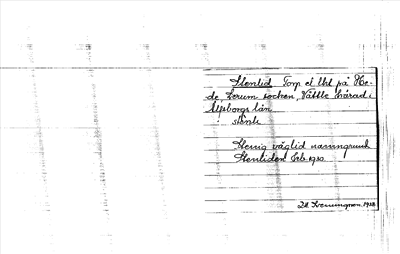 Stenlid Torp et lht på He-
de Lerum socken, Vättle härad i
Älvborgs län.
: stenli
Stenig väglid namngrund
Stenliden Erb 1930.
1928.